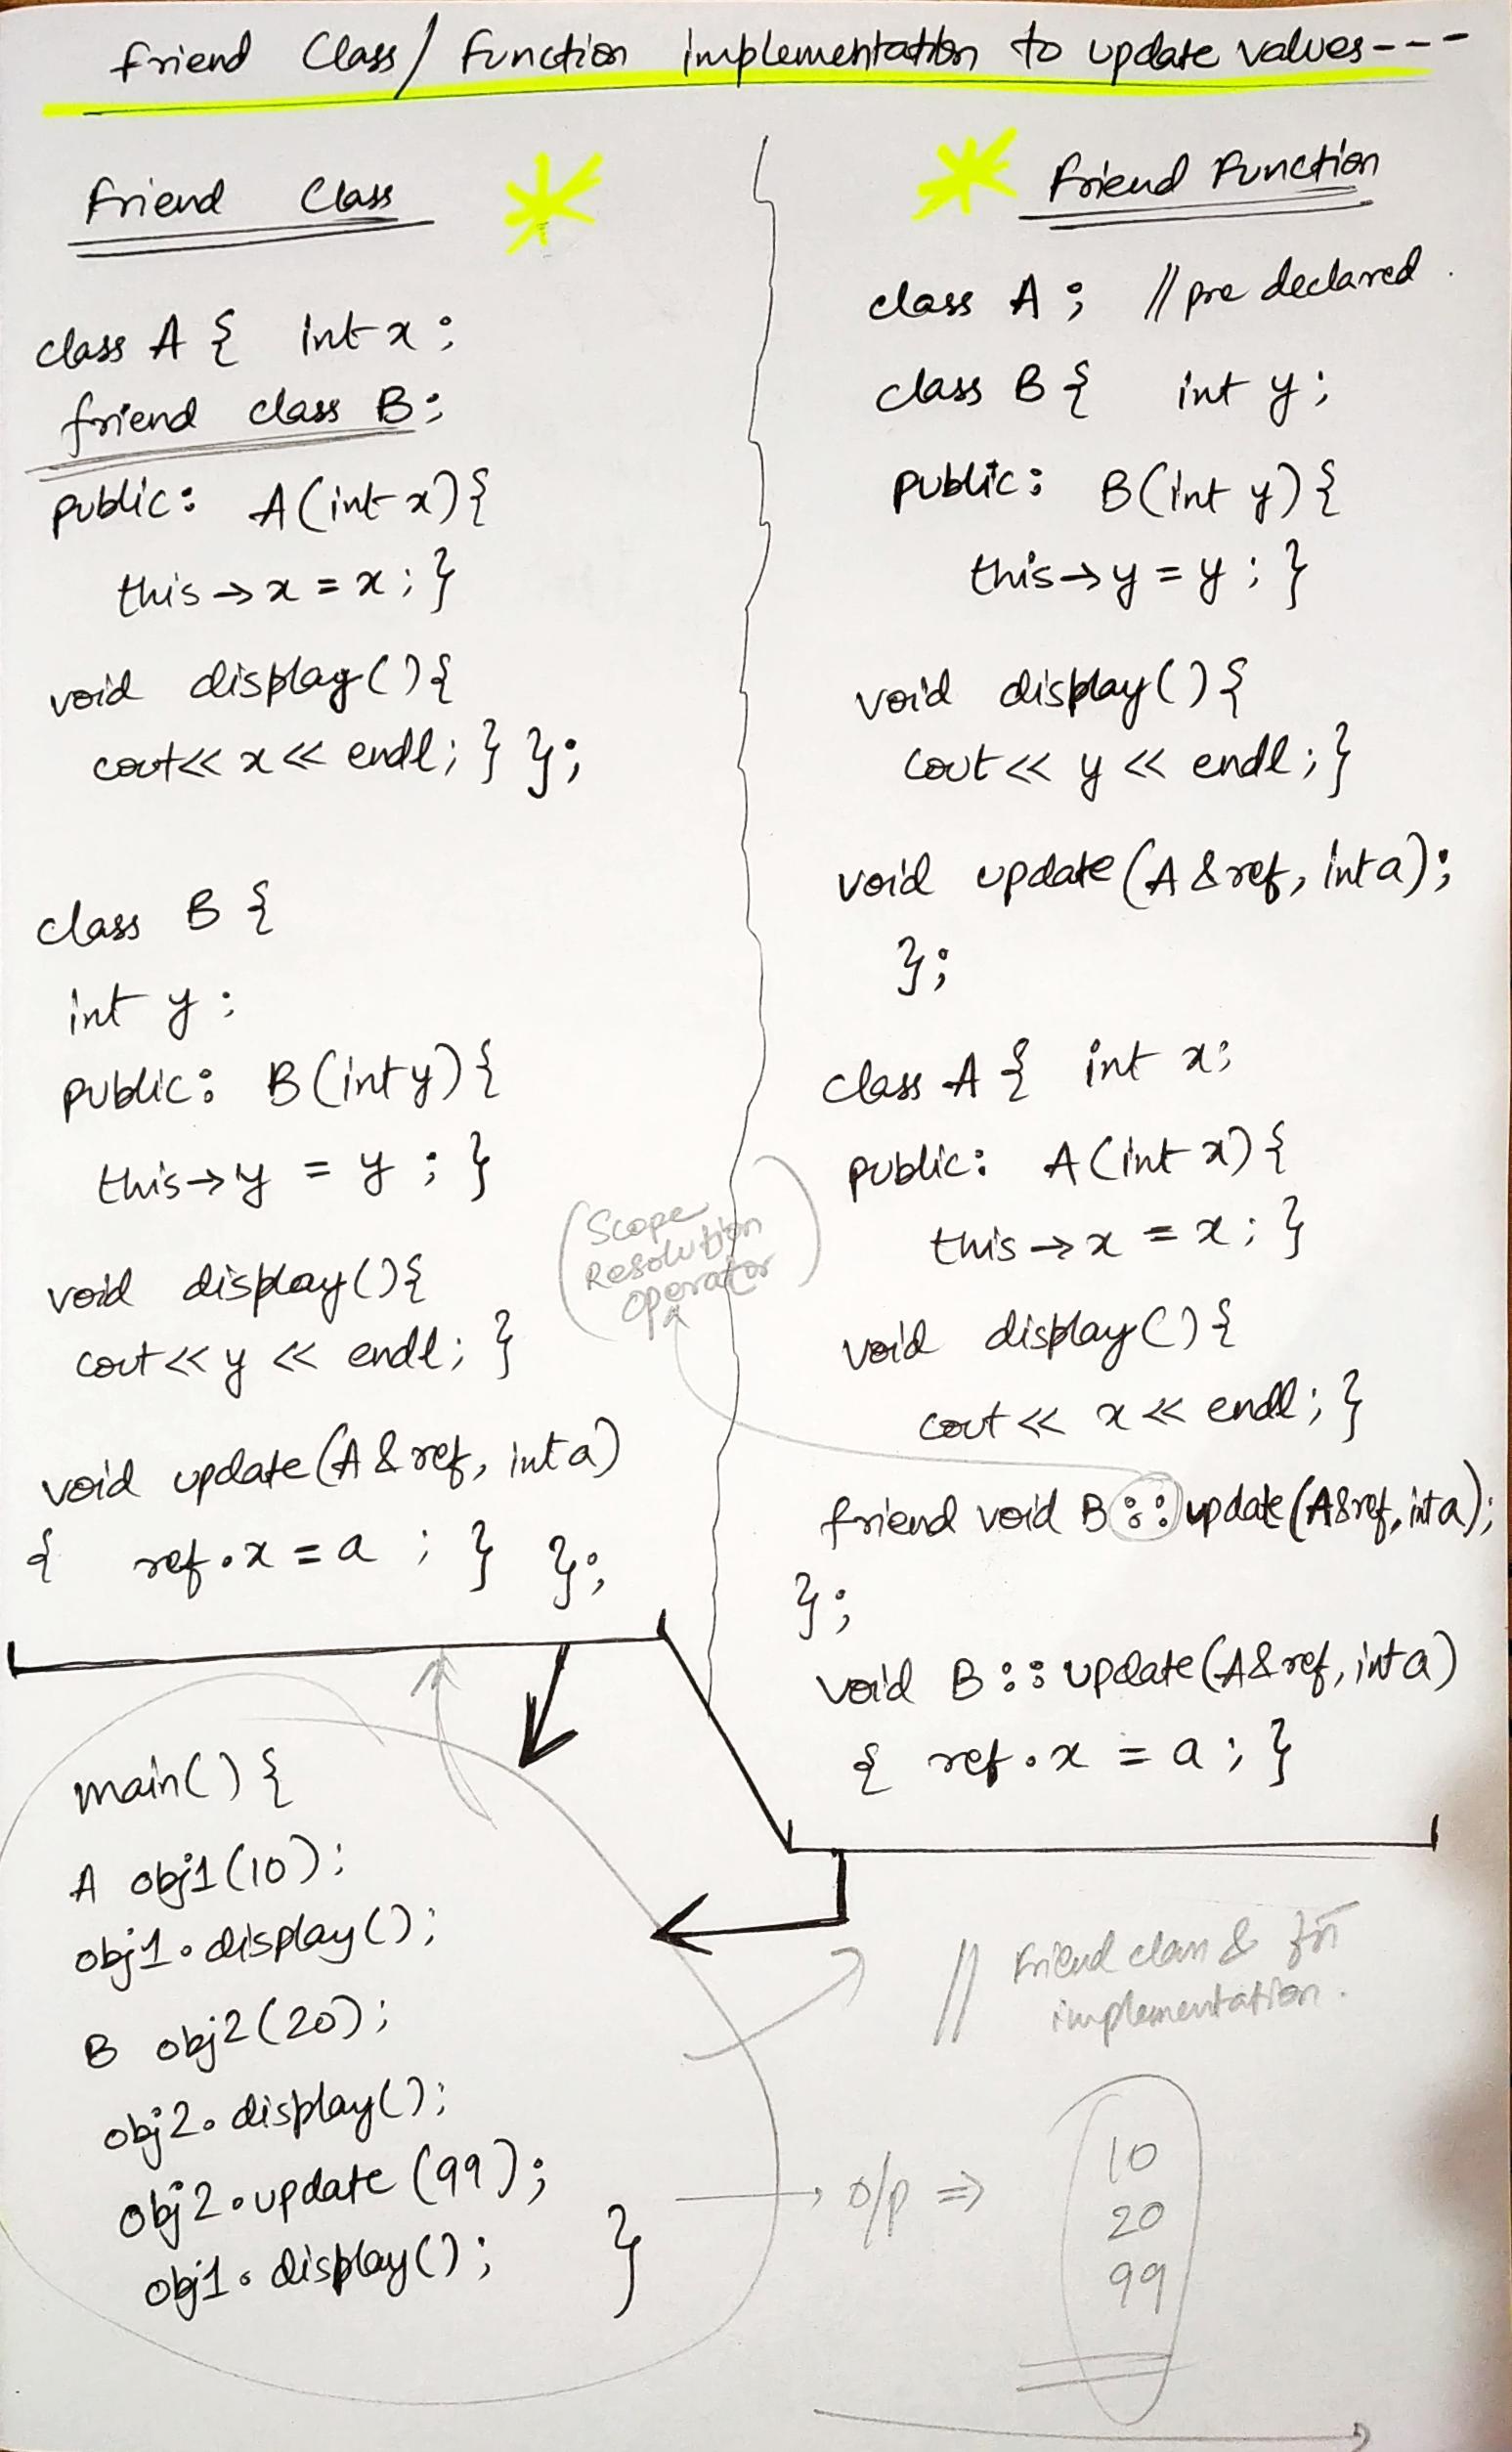 Friend Class / Function implementation to update values---
Friend Class
class A { int x;
friend class B;
public: A(int x){
this→x = x; }
void display(){
cout<< x << endl; } };
class B {
int y;
public: B(int y){
this→y = y; }
void display(){
cout<< y << endl; }
void update(A &ref, int a)
{ ref.x = a ; } };
Friend Function
class A; // pre declared.
class B { int y;
public: B(int y){
this→y = y; }
void display(){
cout<< y << endl; }
void update(A &ref, int a);
};
class A { int x;
public: A(int x){
this→x = x; }
void display(){
cout<< x << endl; }
friend void B::update(A&ref, int a);
};
void B::update(A&ref, int a)
{ ref.x = a; }
(Scope
Resolution
operator)
main(){
A obj1(10);
obj1.display();
B obj2(20);
obj2.display();
obj2.update(99);
obj1.display(); }
// Friend class & fn
implementation.
o/p ⇒
10
20
99